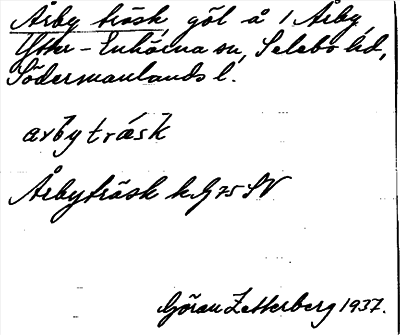 Årby träsk, göl å 1 Årby,
Ytter-Enhörna sn, Selebo hd,
Södermanlands l.
arby träsk
Årbyträsk k. G 75 SV
Göran Zetterberg 1937.